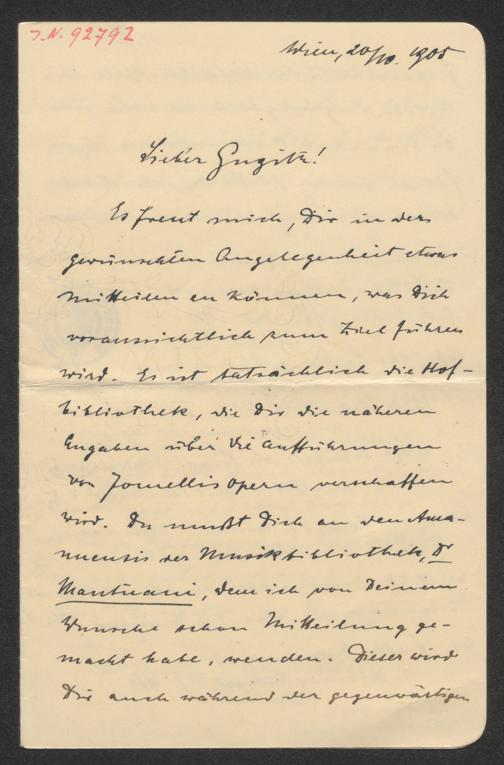 J.N. 92792
Wien, 20/10. 1905
Lieber Gugitz!
Es freut mich, Dir in der
gewünschten Angelegenheit etwas
mitteilen zu können, was Dich
voraussichtlich zum Ziel führen
wird. Es ist tatsächlich die Hof-
bibliothek, die Dir die näheren
Angaben über die Aufführungen
von Jomellis Opern verschaffen
wird. Du mußt Dich an den Ama-
nuensis der Musikbibliothek, Dr
Mantuani, dem ich von Deinem
Wunsche schon Mitteilung ge-
macht habe, wenden. Dieser wird
Dir auch während der gegenwärtigen